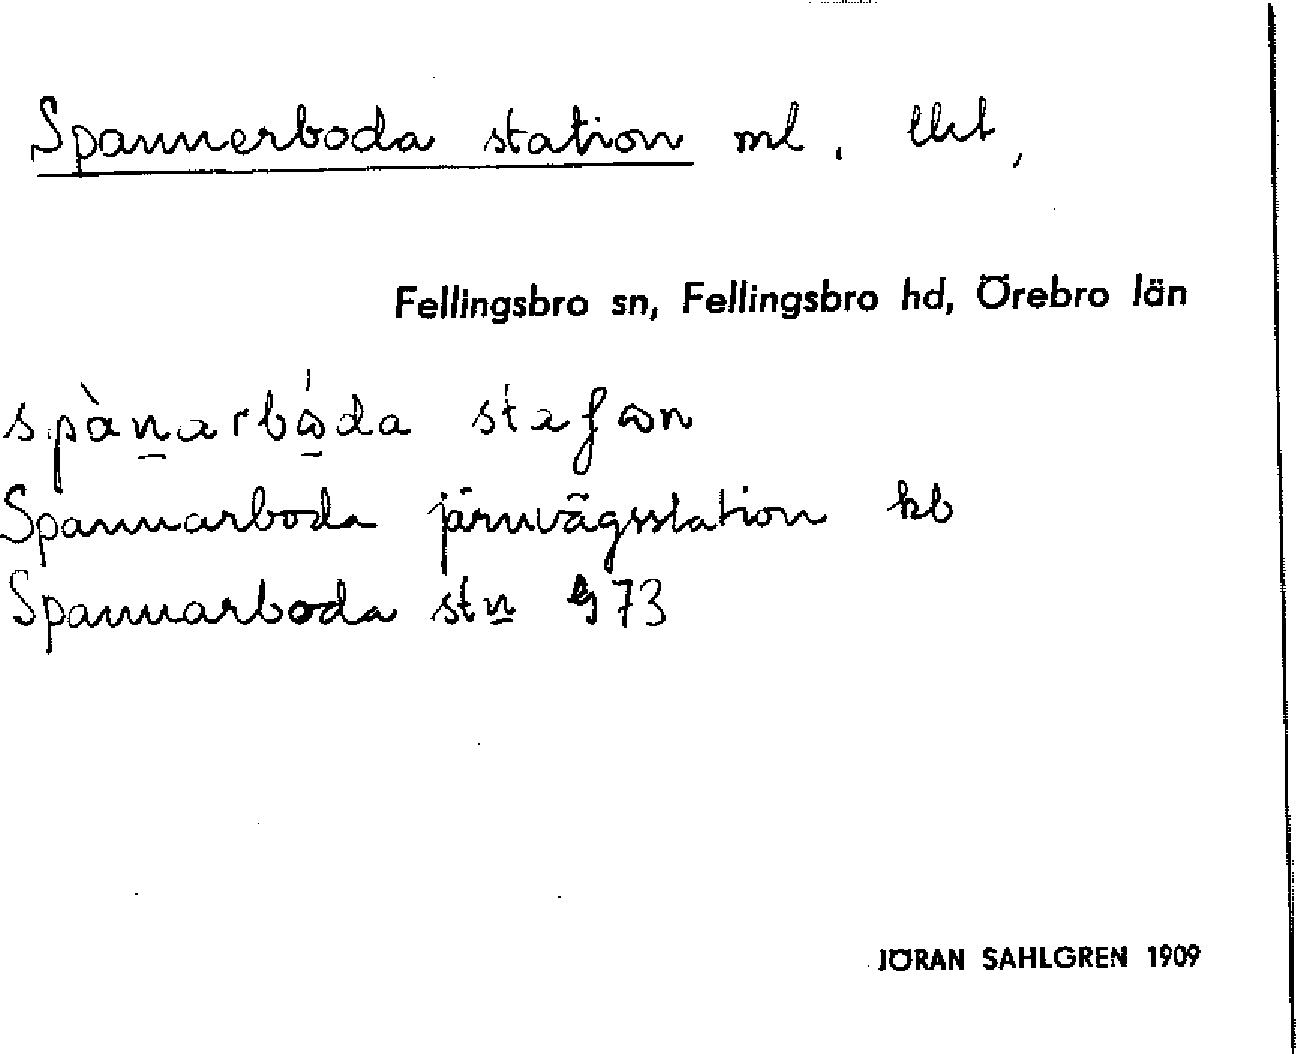 Spannerboda station ml.
Fellingsbro sn, Fellingsbro hd, Örebro län
spànarbåda staʃon
Spannarboda järnvägsstation kb
Spannarboda stn 973
JÖRAN SAHLGREN 1909